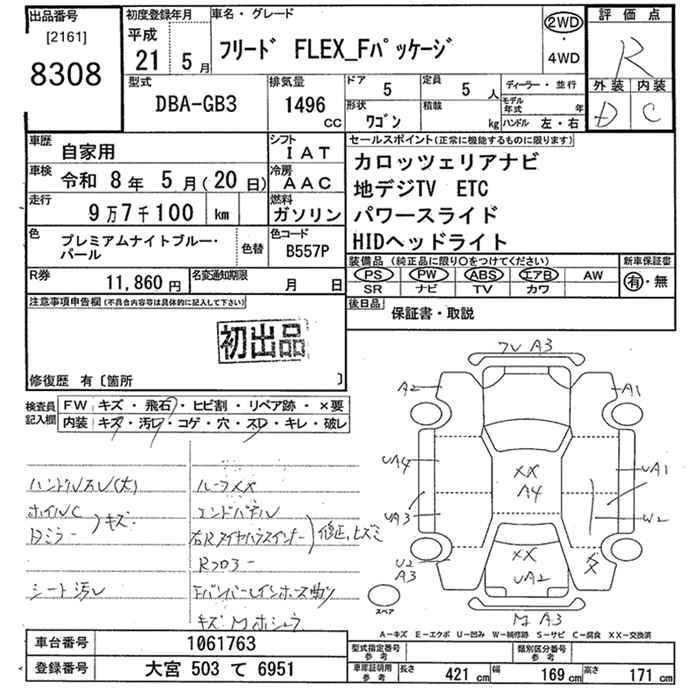 出品番号
[2161]
8308
初度登録年月
平成
21 5月
車名・グレード
フリード FLEX_Fパッケージ
2WD
・
4WD
評価点
R
外装 内装
D C
型式
DBA-GB3
排気量
1496
CC
ドア 5
形状 ワゴン
定員 5 人
積載 kg
ディーラー・並行
モデル年式 年
ハンドル 左・右
車歴 自家用
シフト IAT
車検 令和 8年 5月(20日)
冷房 AAC
走行 9万7千100 km
燃料 ガソリン
色 プレミアムナイトブルー・パール
色替
色コード B557P
R券 11,860円
名変通知期限 月 日
セールスポイント(正常に機能するものに限ります)
カロッツェリアナビ
地デジTV ETC
パワースライド
HIDヘッドライト
装備品(純正品に限り○をつけてください)
新車保証書
PS PW ABS エアB AW
SR ナビ TV カワ
有・無
後日品 保証書・取説
注意事項申告欄(不具合内容等は具体的に記入して下さい)
初出品
修復歴 有〔箇所 〕
検査員記入欄
FW キズ・飛石・ヒビ割・リペア跡・×要
内装 キズ・汚レ・コゲ・穴・スレ・キレ・破レ
ハンドルスレ(大)
ホイルC
Dミラー
キズ
シート汚レ
ルーフXX
エンドパネル
修正、ヒズミ
Rフロアー
フレ A3
A2
A1
UA4
XX
A4
UA1
UA3
W2
U2
A3
XX
UA2
スペア
A3
A-キズ E-エクボ U-凹み W-補修跡 S-サビ C-腐食 XX-交換済
車台番号 1061763
登録番号 大宮 503 て 6951
型式指定番号 参考
類別区分番号 参考
車庫証明用 参考
長さ 421 cm 幅 169 cm 高さ 171 cm